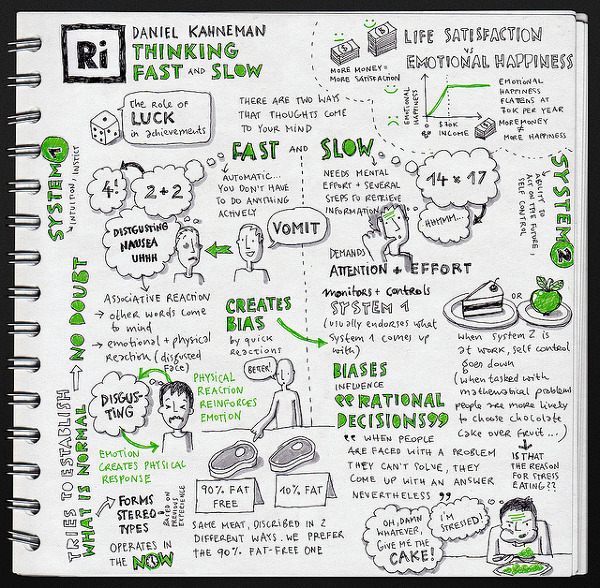 Ri
DANIEL KAHNEMAN
THINKING
FAST AND SLOW
LIFE SATISFACTION
VS
EMOTIONAL HAPPINESS
MORE MONEY =
MORE SATISFACTION
EMOTIONAL
HAPPINESS
$70K
INCOME
EMOTIONAL
HAPPINESS
FLATTENS AT
70K PER YEAR
MORE MONEY
≠
MORE HAPPINESS
the role of
LUCK
in achievements
THERE ARE TWO WAYS
THAT THOUGHTS COME
TO YOUR MIND
FAST AND SLOW
SYSTEM 1
INTUITION, INSTICT
4!
2+2
AUTOMATIC...
YOU DON'T HAVE
TO DO ANYTHING
ACTIVELY
DISGUSTING
NAUSEA
UHHH
VOMIT
ASSOCIATIVE REACTION
→ other words come
to mind
→ emotional + physical
reaction (disgusted
face)
NEEDS MENTAL
EFFORT + SEVERAL
STEPS TO RETRIEVE
INFORMATION
14 x 17
HUMMM...
SYSTEM 2
ABILITY TO
ACT ON THE FUTURE,
SELF CONTROL
DEMANDS
ATTENTION + EFFORT
monitors + controls
SYSTEM 1
(usually endorses what
System 1 comes up
with)
OR
when System 2 is
at work, self control
goes down
(when tasked with
mathematical problem
people are more likely
to choose chocolate
cake over fruit...)
IS THAT
THE REASON
FOR STRESS
EATING??
CREATES
BIAS
by quick
reactions
BIASES
INFLUENCE
"RATIONAL
DECISIONS"
"WHEN PEOPLE
ARE FACED WITH A PROBLEM
THEY CAN'T SOLVE, THEY
COME UP WITH AN ANSWER
NEVERTHELESS"
TRIES TO ESTABLISH
WHAT IS NORMAL
→ NO DOUBT
DISGUS-
TING
PHYSICAL
REACTION
REINFORCES
EMOTION
EMOTION
CREATES PHYSICAL
RESPONSE
FORMS
STEREO-
TYPES
BASED ON
PREVIOUS
EXPERIENCE
OPERATES IN
THE NOW
BETTER!
90% FAT
FREE
10% FAT
SAME MEAT, DISCRIBED IN 2
DIFFERENT WAYS. WE PREFER
THE 90% FAT-FREE ONE
OH, DAMN
WHATEVER,
GIVE ME THE
CAKE!
I'M
STRESSED!